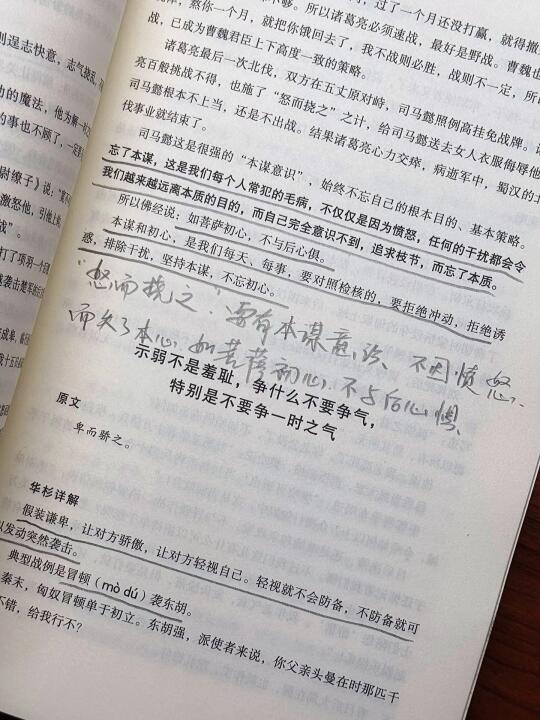 则逞志快意，志气挠乱，不
的魔法，他为解一
的事也不顾了，一
尉缭子》说：
激怒他，引他上
战”。
打了项羽一个
袭击楚军的后
成皋，
我十五
过了一个月还没打赢，就得撤
熬你一个月，就把你饿回去了，我不战则必胜，战则不一定，所
不够。所以诸葛亮必须速战，最好是野战。曹魏也
战，已成为曹魏君臣上下高度一致的策略。
诸葛亮最后一次北伐，双方在五丈原对峙，司马懿照例高挂免战牌。诸
亮百般挑战不得，也施了“怒而挠之”之计，给司马懿送去女人衣服侮辱他
司马懿根本不上当，还是不出战。结果诸葛亮心力交瘁，病逝军中，蜀汉的北
伐事业就结束了。
司马懿这是很强的“本谋意识”，始终不忘自己的根本目的、基本策略。
忘了本谋，这是我们每个人常犯的毛病，不仅仅是因为愤怒，任何的干扰都会令
我们越来越远离本质的目的，而自己完全意识不到，追求枝节，而忘了本质。
所以佛经说：如菩萨初心，不与后心俱。
本谋和初心，是我们每天、每事，要对照检核的，要拒绝冲动，拒绝诱
惑，排除干扰，坚持本谋，不忘初心。
“怒而挠之”：要有本谋意识、不因愤怒、
而失了本心、如菩萨初心、不与后心惧、
示弱不是羞耻，争什么不要争气，
特别是不要争一时之气
原文
卑而骄之。
华杉详解
假装谦卑，让对方骄傲，让对方轻视自己。轻视就不会防备，不防备就可
以发动突然袭击。
典型战例是冒顿（mò dú）袭东胡。
秦末，匈奴冒顿单于初立。东胡强，派使者来说，你父亲头曼在时那匹千
不错，给我行不？